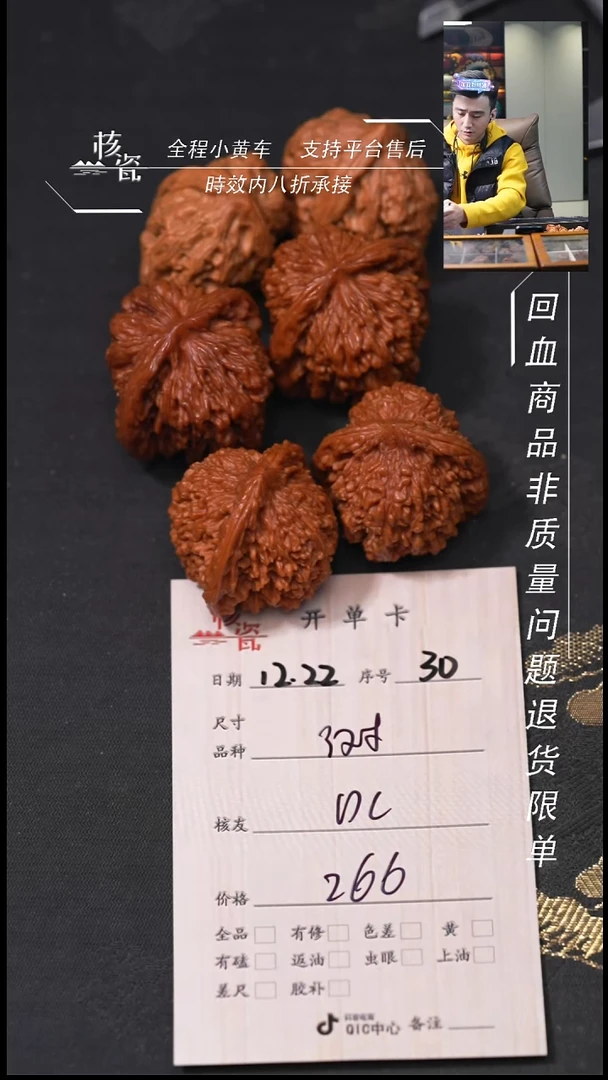 核瓷
全程小黄车 支持平台售后
時效内八折承接
回血商品非质量问题退货限单
核瓷
开单卡
日期 12.22 序号 30
尺寸
品种 3对
核友
价格 266
全品 有修 色差 黄
有磕 返油 虫眼 上油
差尺 胶补
抖音电商
QIC中心 备注